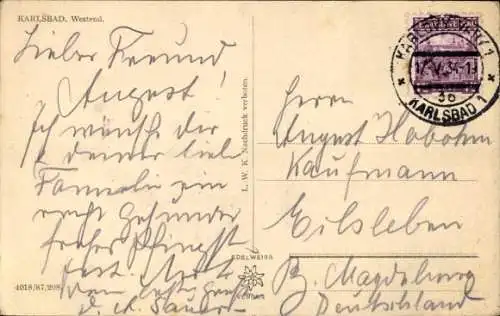 KARLSBAD. Westend.
Lieber Freund
August!
Ich wünsche dir
& deiner lieb
Familie ein
recht gesundes
frohes Pfingst
fest.
d.
L. W. K. Nachdruck verboten.
4018/87/298
EDELWEISS
KARLSBAD 1
17.V.34-1
3b
KARLSBAD 1
Herrn
August Hobohm
Kaufmann
Eilsleben
Bz. Magdeburg
Deutschland